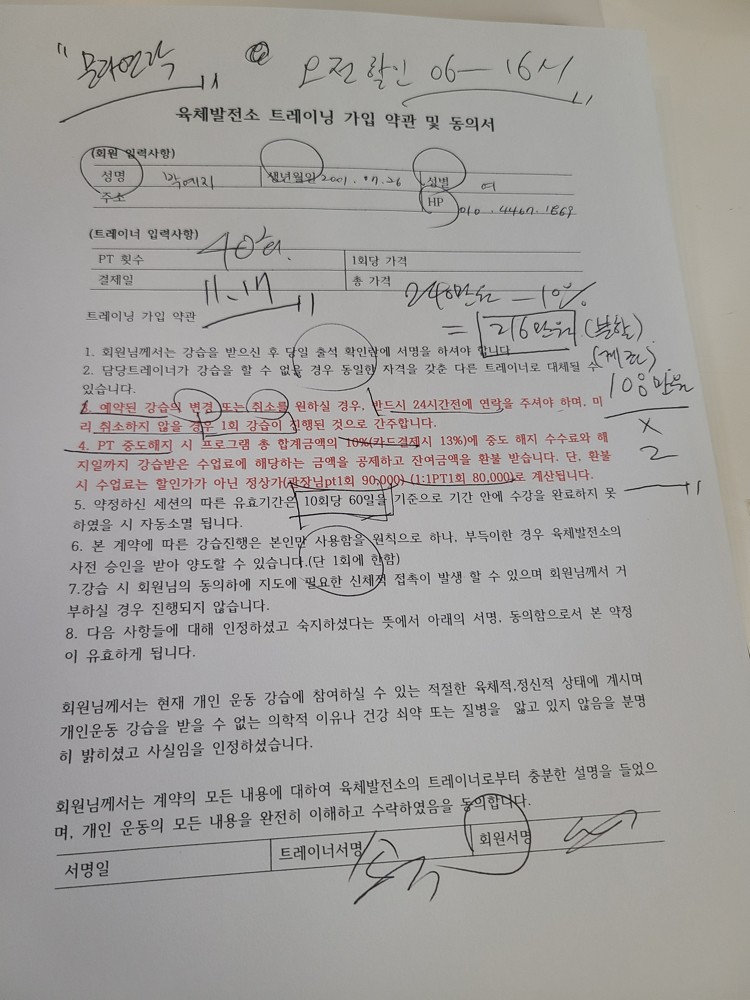 "몰라연락" @ 오전할인 06—16시
육체발전소 트레이닝 가입 약관 및 동의서
(회원 입력사항)
성명 박예지 생년월일 2001. 07. 26 성별 여
주소 HP 010.4467.1869
(트레이너 입력사항)
PT 횟수 40회. 1회당 가격
결제일 11.17 총 가격 240만원 -10%
= 216만원 (분할)
트레이닝 가입 약관
1. 회원님께서는 강습을 받으신 후 당일 출석 확인란에 서명을 하셔야 합니다
2. 담당트레이너가 강습을 할 수 없을 경우 동일한 자격을 갖춘 다른 트레이너로 대체될 수
있습니다.
108만원
3. 예약된 강습의 변경 또는 취소를 원하실 경우, 반드시 24시간전에 연락을 주셔야 하며, 미
리 취소하지 않을 경우 1회 강습이 진행된 것으로 간주합니다.
X
2
4. PT 중도해지 시 프로그램 총 합계금액의 10%(카드결제시 13%)에 중도 해지 수수료와 해
지일까지 강습받은 수업료에 해당하는 금액을 공제하고 잔여금액을 환불 받습니다. 단, 환불
시 수업료는 할인가가 아닌 정상가(관장님pt1회 90,000) (1:1PT1회 80,000)로 계산됩니다.
5. 약정하신 세션의 따른 유효기간은 10회당 60일을 기준으로 기간 안에 수강을 완료하지 못
하였을 시 자동소멸 됩니다.
6. 본 계약에 따른 강습진행은 본인만 사용함을 원칙으로 하나, 부득이한 경우 육체발전소의
사전 승인을 받아 양도할 수 있습니다.(단 1회에 한함)
7.강습 시 회원님의 동의하에 지도에 필요한 신체적 접촉이 발생 할 수 있으며 회원님께서 거
부하실 경우 진행되지 않습니다.
8. 다음 사항들에 대해 인정하셨고 숙지하셨다는 뜻에서 아래의 서명, 동의함으로서 본 약정
이 유효하게 됩니다.
회원님께서는 현재 개인 운동 강습에 참여하실 수 있는 적절한 육체적,정신적 상태에 계시며
개인운동 강습을 받을 수 없는 의학적 이유나 건강 쇠약 또는 질병을 앓고 있지 않음을 분명
히 밝히셨고 사실임을 인정하셨습니다.
회원님께서는 계약의 모든 내용에 대하여 육체발전소의 트레이너로부터 충분한 설명을 들었으
며, 개인 운동의 모든 내용을 완전히 이해하고 수락하였음을 동의합니다.
서명일 트레이너서명 회원서명